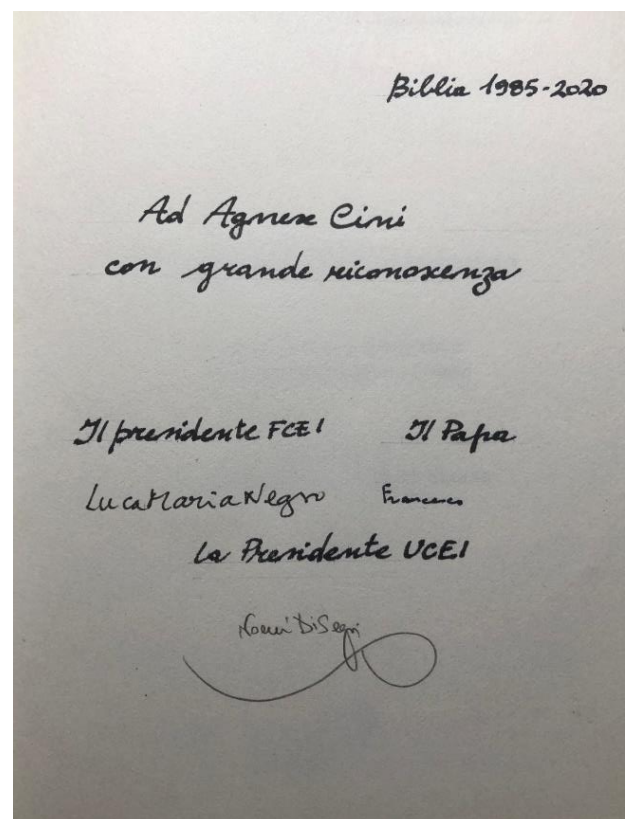 Biblia 1985-2020
Ad Agnese Cini
con grande riconoscenza
Il presidente FCEI Il Papa
Luca Maria Negro Francesco
La Presidente UCEI
Noemi Di Segni